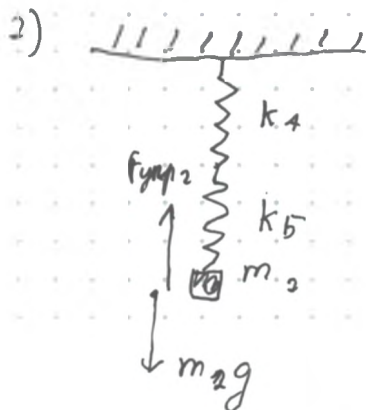 2)
k4
Fупр2
k5
m2
m2g